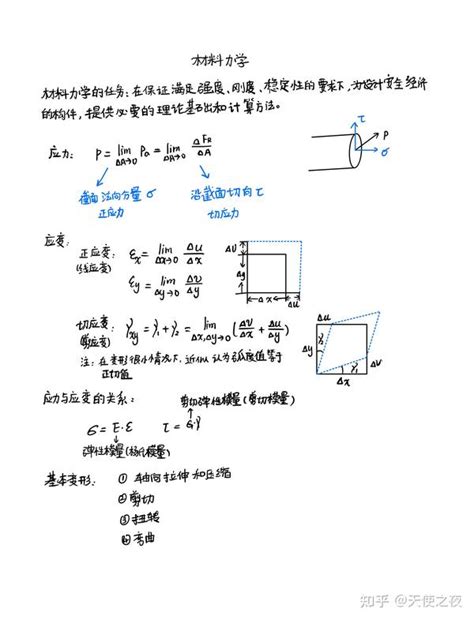 材料力学
材料力学的任务:在保证满足强度、刚度、稳定性的要求下,为设计安全经济
的构件,提供必要的理论基础和计算方法。
应力: P = lim ΔA→0 Pa = lim ΔA→0 ΔFR/ΔA
τ
P
σ
截面法向分量σ 沿截面切向τ
正应力 切应力
应变:
正应变: εx = lim Δx→0 Δu/Δx
(线应变)
εy = lim Δy→0 Δv/Δy
ΔV
Δy
Δx Δu
切应变: γxy = γ1 + γ2 = lim Δx,Δy→0 (Δv/Δx + Δu/Δy)
(剪应变)
注:在变形很小情况下,近似认为弧度值等于
正切值
Δu
Δy γ2 ΔV
γ1
Δx
应力与应变的关系: 剪切弹性模量(剪切模量)
σ = E·ε τ = G·γ
弹性模量(杨氏模量)
基本变形: ① 轴向拉伸和压缩
②剪切
③扭转
④弯曲
知乎 @天使之夜